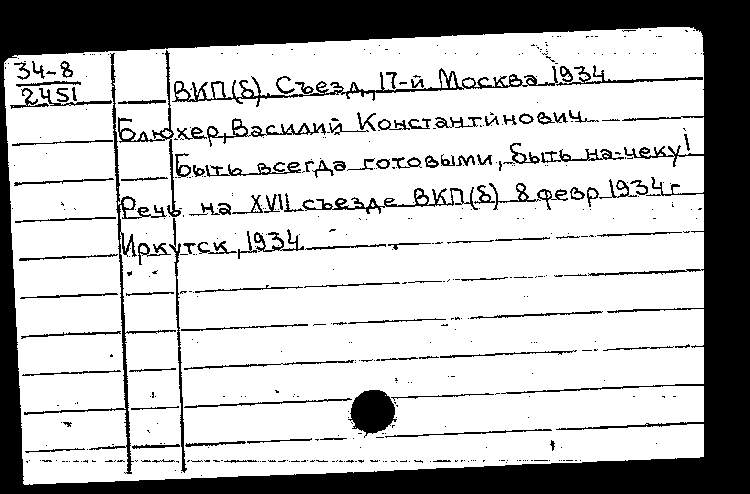 34-8
2451
ВКП(б). Съезд, 17-й. Москва. 1934.
Блюхер, Василий Константинович.
Быть всегда готовыми, быть на-чеку!
Речь на XVII съезде ВКП(б) 8 февр. 1934 г.
Иркутск, 1934.